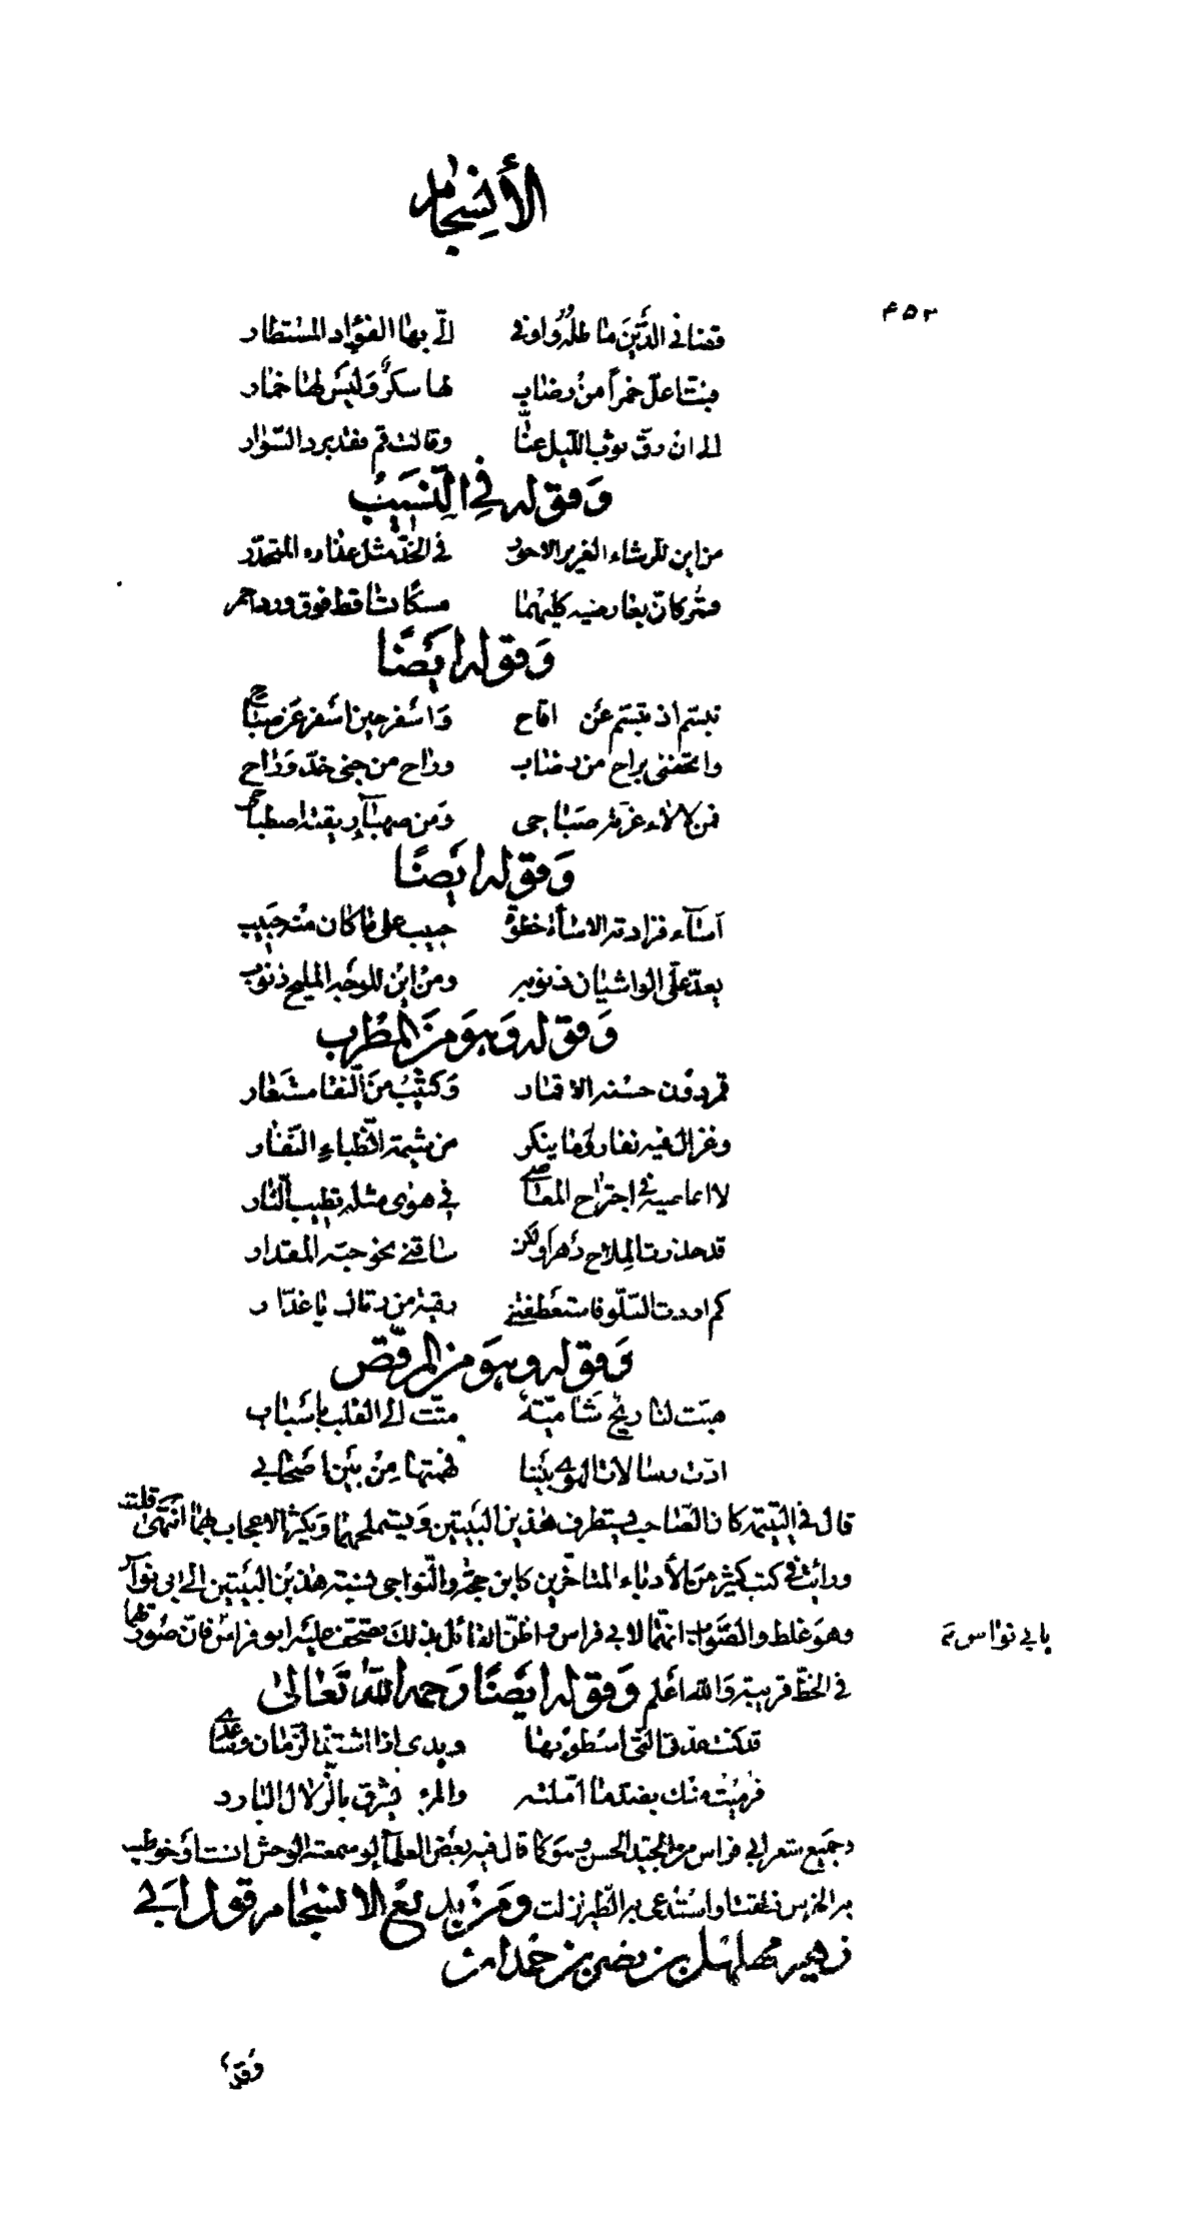 الأنسجام
٤٥٣
قضاني الدَّيْنَ ماطله ووافى    الىّ بها الفؤاد المستطار
فبتنا علّ خمراً من رضاب    لها سكرٌ وليس لها خمار
الى ان رقّ ثوب الليل عنّا    وقالت قم فقد برد السّوار
وَقوله في النَّسيب
من اين للرشاء الغرير الاحور    في الخدّ مثل عذاره المتحدّر
قمر كانّ بعارضيه كليهما    مسكاً تساقط فوق ورد احمر
وَقوله ايضًا
تبسّم اذ تبسّم عن اقاح    وَاسفر حين اسفر عن صباح
واتحفنى براح من رضاب    وراح من جنى خدّ وَراح
فمن لألاء غرّته صباحى    وَمن صهباء ريقته اصطباح
وَقوله ايضًا
اسآء فزادته الاساءة خطوة    حبيب على ما كان منه حبيب
يعدّ علىّ الواشيان ذنوبه    ومن اين للوجه المليح ذنوب
وَقوله وَهوَ منَ المطرب
قمر دون حسنه الاقمار    وَكثيب منَ النّقا مستعار
وغزال فيه نفار وَما ينكر    من شيمة الظباءِ النّفار
لا اعاصيه في اجتراح المعاصى    في هوى مثله تطيب النّار
قد حذرت الملاح دهراً ولكن    ساقنى نحو حبّه المقدار
كم اردت السّلو فاستعطفتني    رقية من رقاك يا غدّار
وَقوله وهوَ من المرقّص
هبّت لنا ريح شاميّة    متّت الى القلب باسباب
ادّت رسالات الهوى بيننا    فهمتها من بين اصحابي
قال في اليتيمة كان الصّاحب يستظرف هذين البيتين وَيستملحهما وَيكثر الاعجاب بهما انتهى قلت
ورأيت في كتب كثير من الأدباء المتاخّرين كابن حجّة والنّواجى نسبة هذين البيتين الى ابى نوآس
وهوَ غلط والصّواب انّهما لابى فراس واظنّ القائل بذلك تصحّف عليه ابو فراس فانّ صورتهما
بابي نواس م
في الخطّ قريبة وَالله اعلم وَقوله ايضًا رَحمه اللهُ تَعَالىٰ
قد كنت عدّتى التى اسطو بها    ويدى اذا اشتدّ الزّمان وساعدى
فرميت منك بضدّ ما امّلته    والمرء يشرق بالزّلال البارد
وجميع شعر ابى فراس من الجيّد الحسن وهوَ كما قال فيه بعض العلمآء لو سمعته الوحش انست اوخوطب
به الخرس نطقت او استدعى به الطّير نزلت وَمن بديع الانسجام قول ابى
زهير مهلهل بن نصر بن حمدان
وَقد